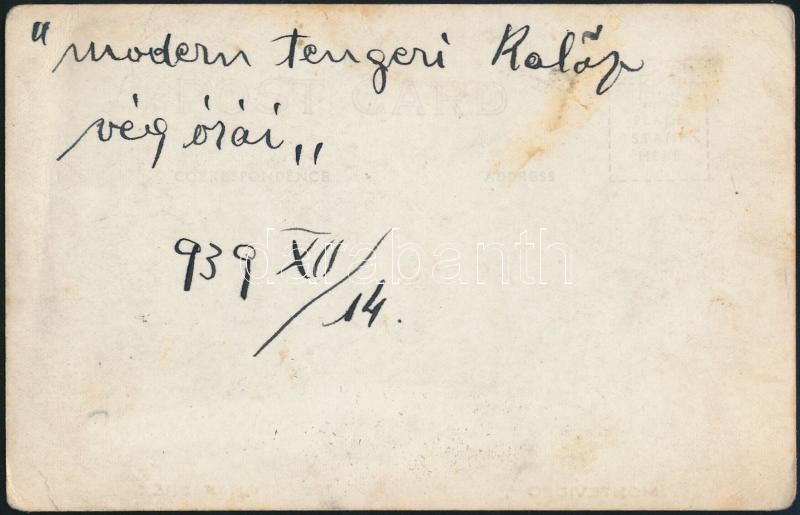 " modern tengeri Kalőz
vég órái "
POST CARD
PLACE
STAMP
HERE
CORRESPONDENCE
ADDRESS
939 XII/14.
darabanth
MONTEVIDEO